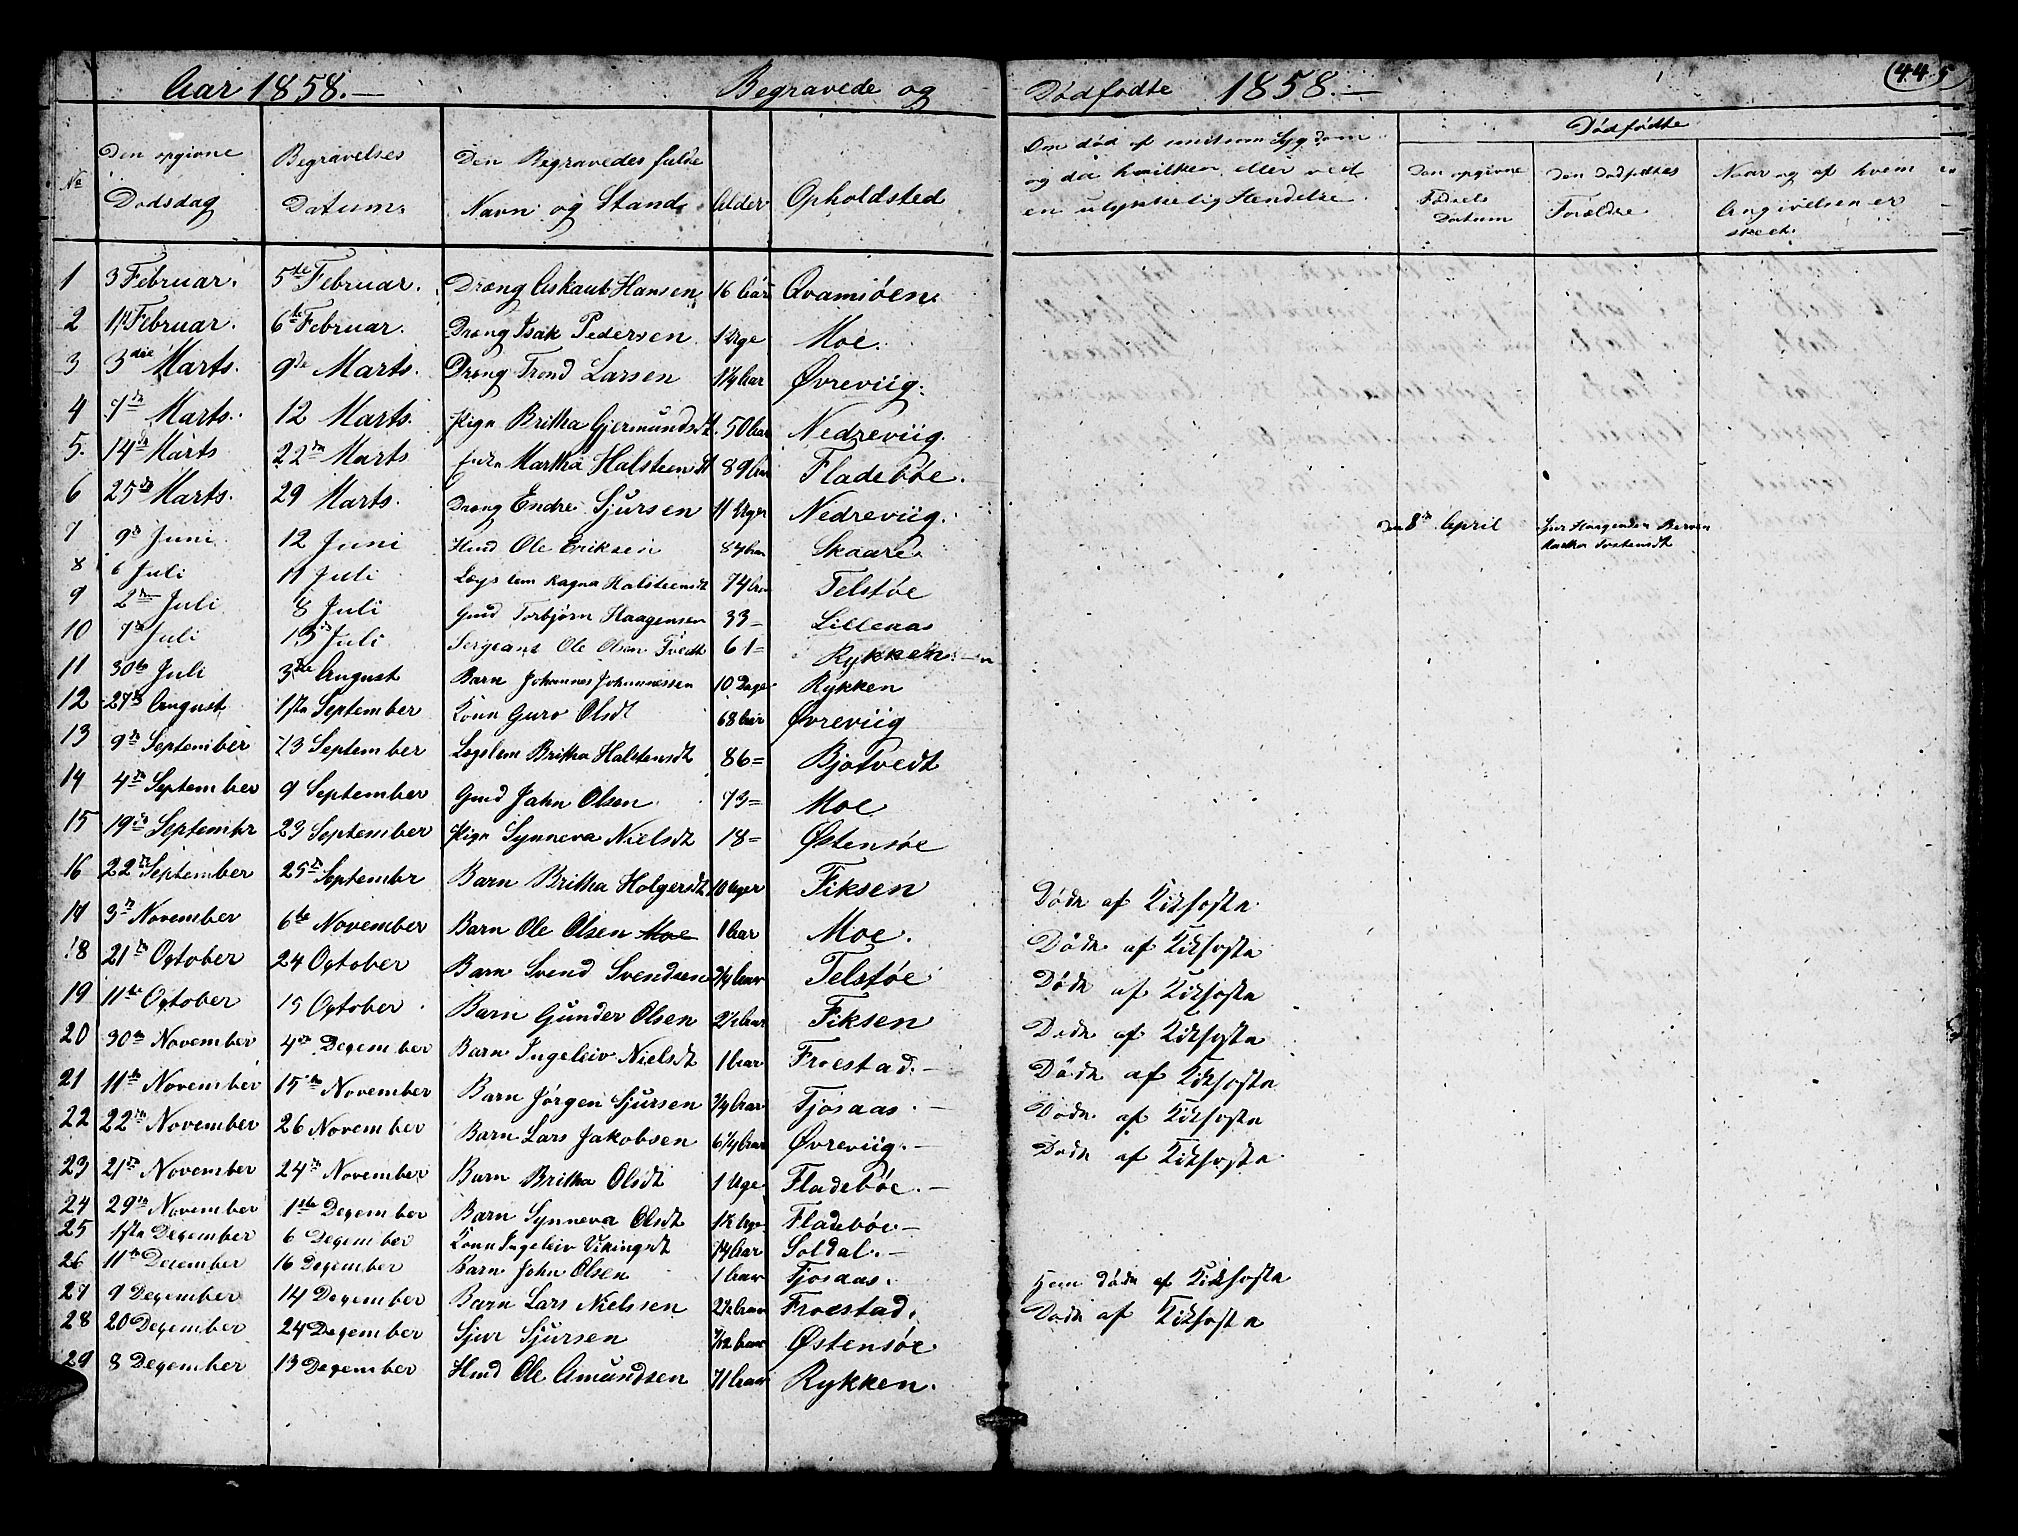 Aar 1858.— Begravede og Dødfødte 1858.— (44.5
No Den opgivne Dødsdag Begravelses Datum. Den Begravedes fulde Navn og Stand. Alder Opholdsted Om død af smitsom Sygdom og da hvilken, eller ved en ulykkelig Hendelse. Dødfødte
Den opgivne Fødsels Datum Den dødfødtes Forældre Naar og af hvem Angivelsen er skeet.
1 3 Februar. 5te Februar. Dreng Askaut Hansen 16 Aar Qvamsøen.
2 Februar. 6te Februar. Dreng Isak Pedersen 1 Uge Moe.
3 3die Marts. 9de Marts. Dreng Trond Larsen 1¼ Aar Øvreviig.
4 7de Marts. 12 Marts. Pige Britha Gjermundsdt. 50 Aar Nedreviig.
5. 14de Marts 22de Marts Enke Martha Halsteensdt 89 Aar Fladebøe.
6 25de Marts. 29 Marts. Dreng Endre Sjursen 11 Uger Nedreviig.
7 9de Juni 12 Juni Huusmd Ole Eriksen 84 Aar Skaare. den 8de April Sjur Haagensen Berven
Martha Tostensdt
8 6 Juli 11 Juli Lægslem Ragna Halsteensdt 74 Aar Telstøe
9 2den Juli 8 Juli Gmd Torbjørn Haagensen 33 – Lillenas
10 7de Juli 13de Juli Sergeant Ole Olsen Tvedt 61 = Rykken.
11 30te Juli 3die August Barn Johannes Johannessen 10 Dage Rykken
12 27de August 1ste September Kone Guro Olsdt 68 Aar Øvreviig
13 9de September 13 September Lægslem Britha Halstensdt 86 = Bjotvedt
14 4de September 9 September Gmd John Olsen 73 = Moe
15 19de Septembr 23 September Pige Synneva Nielsdt 18 = Østensøe
16 22de September 25de Septembr Barn Britha Holgersdt 10 Uger Fiksen Døde af Kikhoste
17 3de November 6te November Barn Ole Olsen Moe 1 Aar Moe. Døde af Kikhoste
18 21de Ogtober 24 Ogtober Barn Svend Svendsen ¾ Aar Telstøe Døde af Kikhoste
19 11te Ogtober 15 Ogtober. Barn Gunder Olsen 2½ Aar Fiksen Døde af Kikhoste
20 30te November 4de Degember Barn Ingeleiv Nielsdt 1 Aar Froestad.— Døde af Kikhoste
21 11te November 15de November Barn Jørgen Sjursen ¾ Aar Tjosaas.— Døde af Kikhoste
22 22de November 26 November Barn Lars Jakobsen 6¼ Aar Øvreviig.— Døde af Kikhoste
23 21de November 24de November Barn Britha Olsdt 1 Uge Fladebøe.—
24 29de November 1ste Degember Barn Synneva Olsdt Uge Fladebøe—
25 1ste Degember 6 Degember Kone Ingeleiv Vikingsdt 74 Aar Soldal.—
26 11te December 16 Degember Barn John Olsen 1 Aar Tjosaas. døde af Kikhoste
27 9 Degember 14 Degember Barn Lars Nielssen 2½ Aar Froestad. Døde af Kikhoste
28 20 Degember 24 Degember Sjur Sjursen Aar Østensøe
29 8 Degember 13 Degember Huusmd Ole Amundsen 71 Aar Rykken.